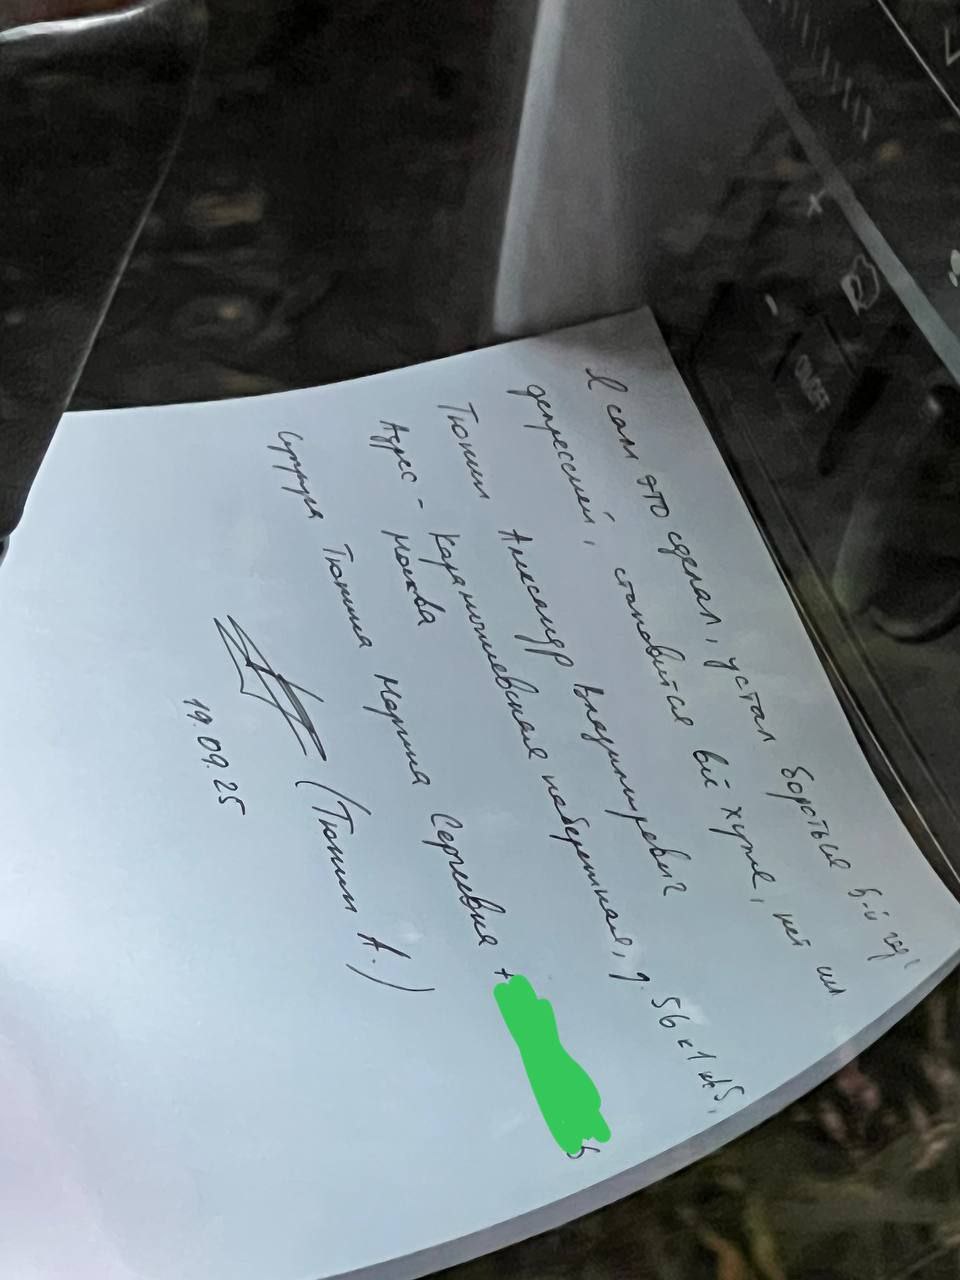 Я сам это сделал, устал бороться 5-й год с
депрессией, становится всё хуже, нет сил
Тюнин Александр Владимирович
Адрес - Карамышевская набережная, д. 56 к1 кв5,
Москва
Супруга Тюнина Марина Сергеевна +
(Тюнин А.)
19.09.25
ON/OFF
+
-